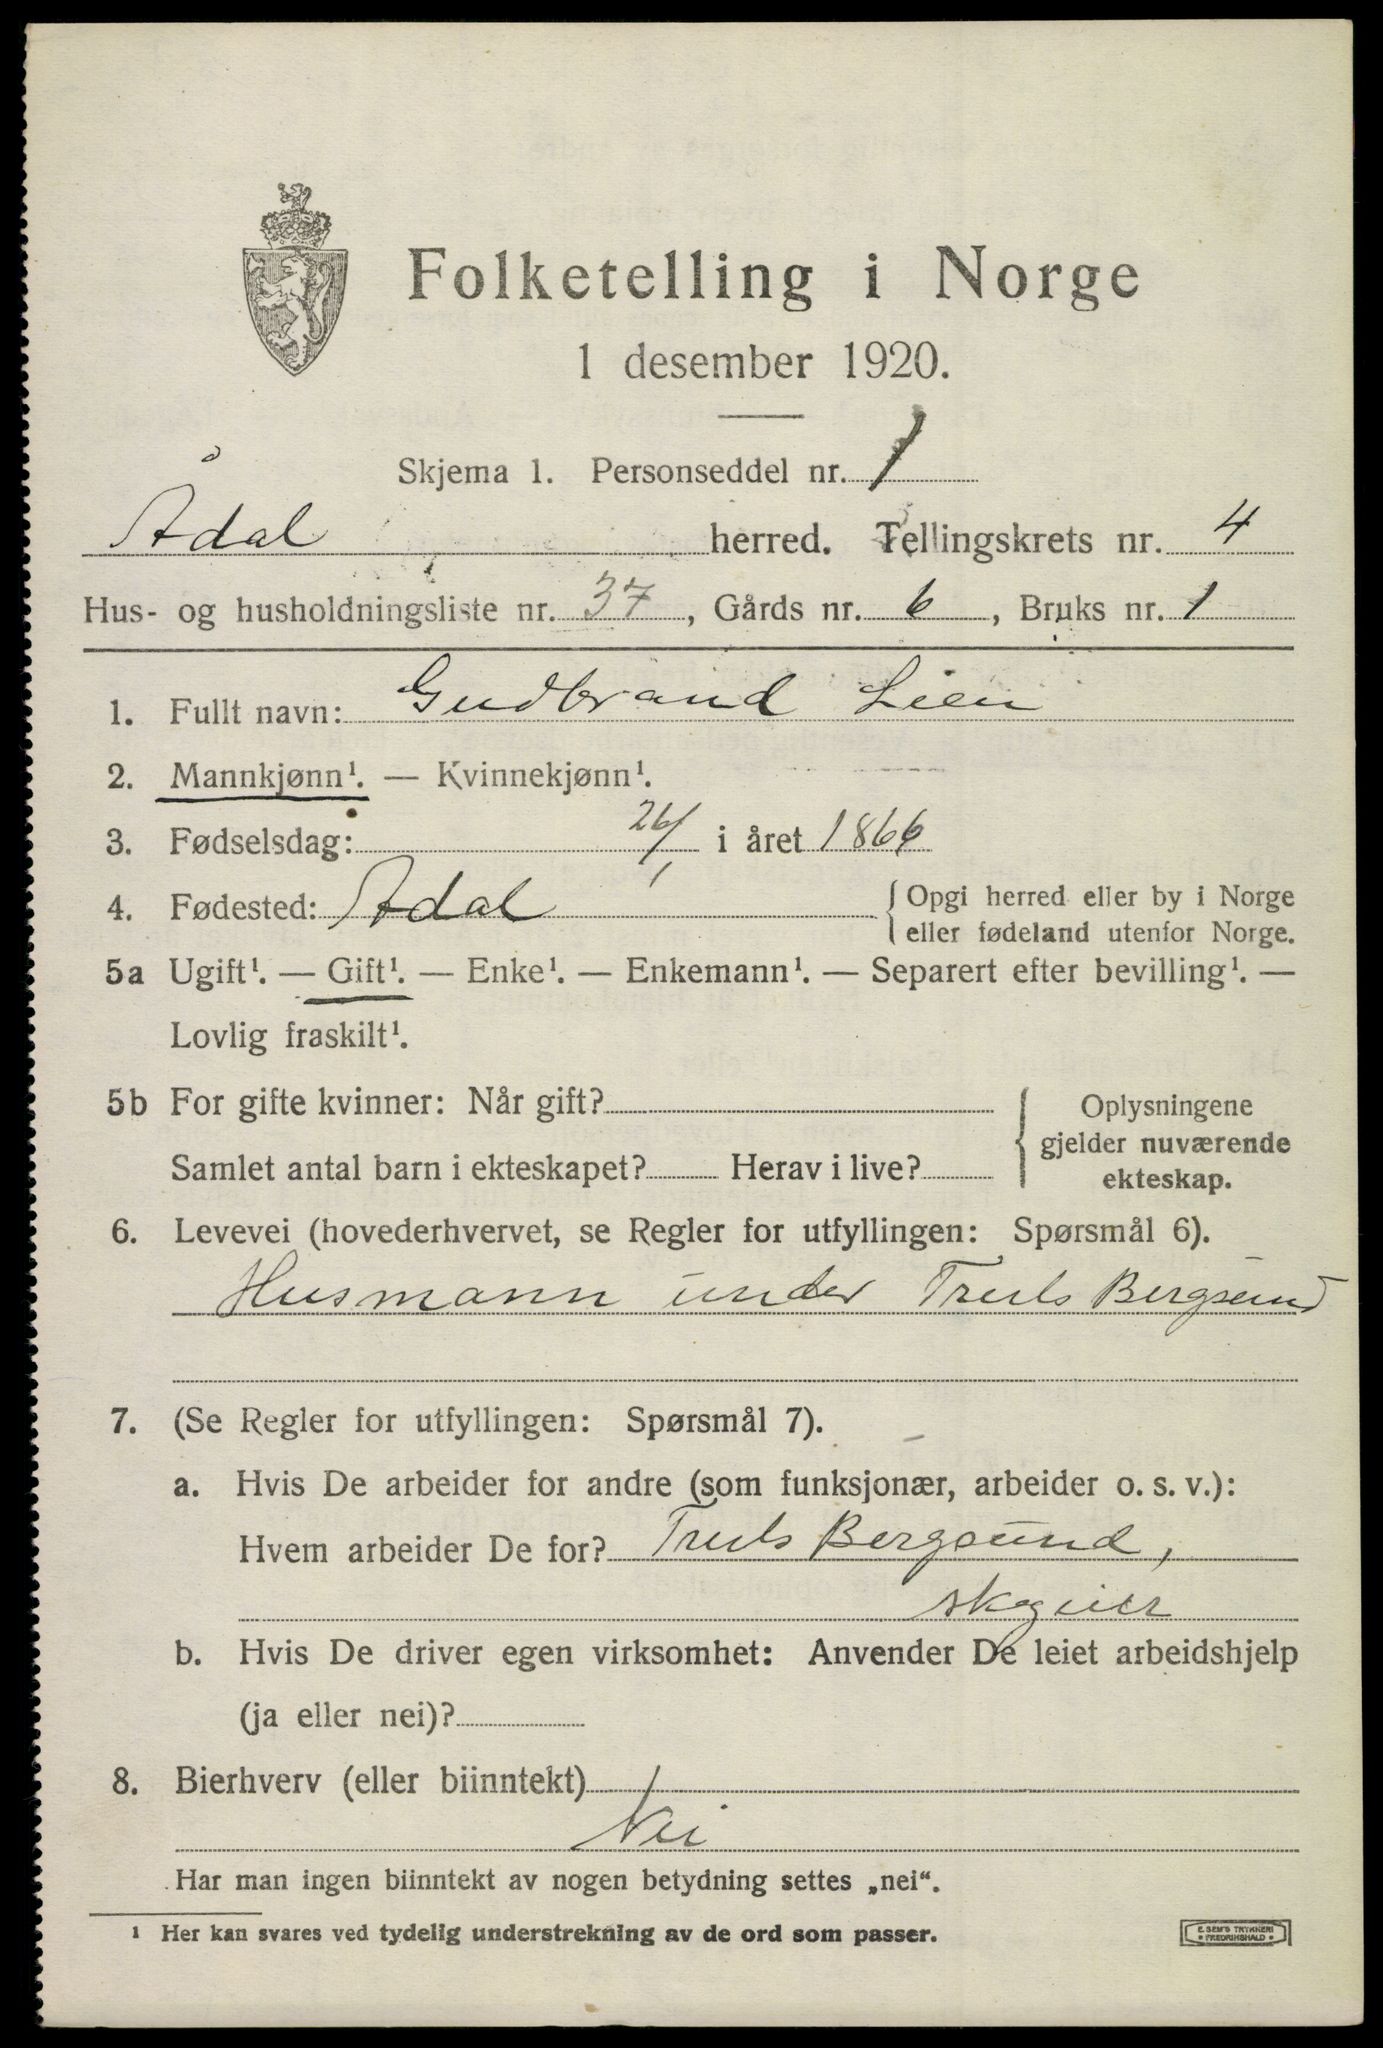 Folketelling i Norge
1 desember 1920.
Skjema 1. Personseddel nr. 1
Ådal herred. Tellingskrets nr. 4
Hus- og husholdningsliste nr. 37, Gårds nr. 6, Bruks nr. 1
1. Fullt navn: Gudbrand Lien
2. Mannkjønn¹. — Kvinnekjønn¹.
3. Fødselsdag: 26/1 i året 1866
4. Fødested: Ådal {Opgi herred eller by i Norge
eller fødeland utenfor Norge.
5a Ugift¹. — Gift¹. — Enke¹. — Enkemann¹. — Separert efter bevilling¹. —
Lovlig fraskilt¹.
5b For gifte kvinner: Når gift? { Oplysningene
gjelder nuværende
Samlet antal barn i ekteskapet? Herav i live?
ekteskap.
6. Levevei (hovederhvervet, se Regler for utfyllingen: Spørsmål 6).
Husmann under Truls Bergsund
7. (Se Regler for utfyllingen: Spørsmål 7).
a. Hvis De arbeider for andre (som funksjonær, arbeider o. s. v.):
Hvem arbeider De for? Truls Bergsund,
skogeier
b. Hvis De driver egen virksomhet: Anvender De leiet arbeidshjelp
(ja eller nei)?
8. Bierhverv (eller biinntekt)
Nei
Har man ingen biinntekt av nogen betydning settes „nei“.
¹ Her kan svares ved tydelig understrekning av de ord som passer.
E. SEM'S TRYKKERI
FREDRIKSHALD